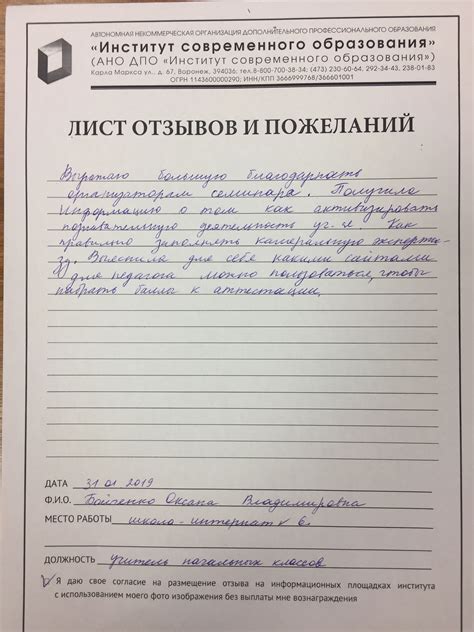 АВТОНОМНАЯ НЕКОММЕРЧЕСКАЯ ОРГАНИЗАЦИЯ ДОПОЛНИТЕЛЬНОГО ПРОФЕССИОНАЛЬНОГО ОБРАЗОВАНИЯ
«Институт современного образования»
(АНО ДПО «Институт современного образования»)
Карла Маркса ул., д. 67, Воронеж, 394036; тел.8-800-700-38-34; (473) 230-60-64, 292-34-43, 238-01-83
ОГРН 1143600000290; ИНН/КПП 3666999768/366601001
ЛИСТ ОТЗЫВОВ И ПОЖЕЛАНИЙ
Выражаю большую благодарность
организаторам семинара. Получила
Информацию о том как активизировать
познавательную деятельность уч-ся. Как
правильно заполнять камеральную эксперти-
зу. Выяснила для себя какими сайтами
для педагога можно пользоваться, чтобы
набрать баллы к аттестации.
ДАТА 31 01 2019
Ф.И.О. Бойченко Оксана Владимировна
МЕСТО РАБОТЫ школа-интернат № 6.
ДОЛЖНОСТЬ учитель начальных классов
V Я даю свое согласие на размещение отзыва на информационных площадках института
с использованием моего фото изображения без выплаты мне вознаграждения